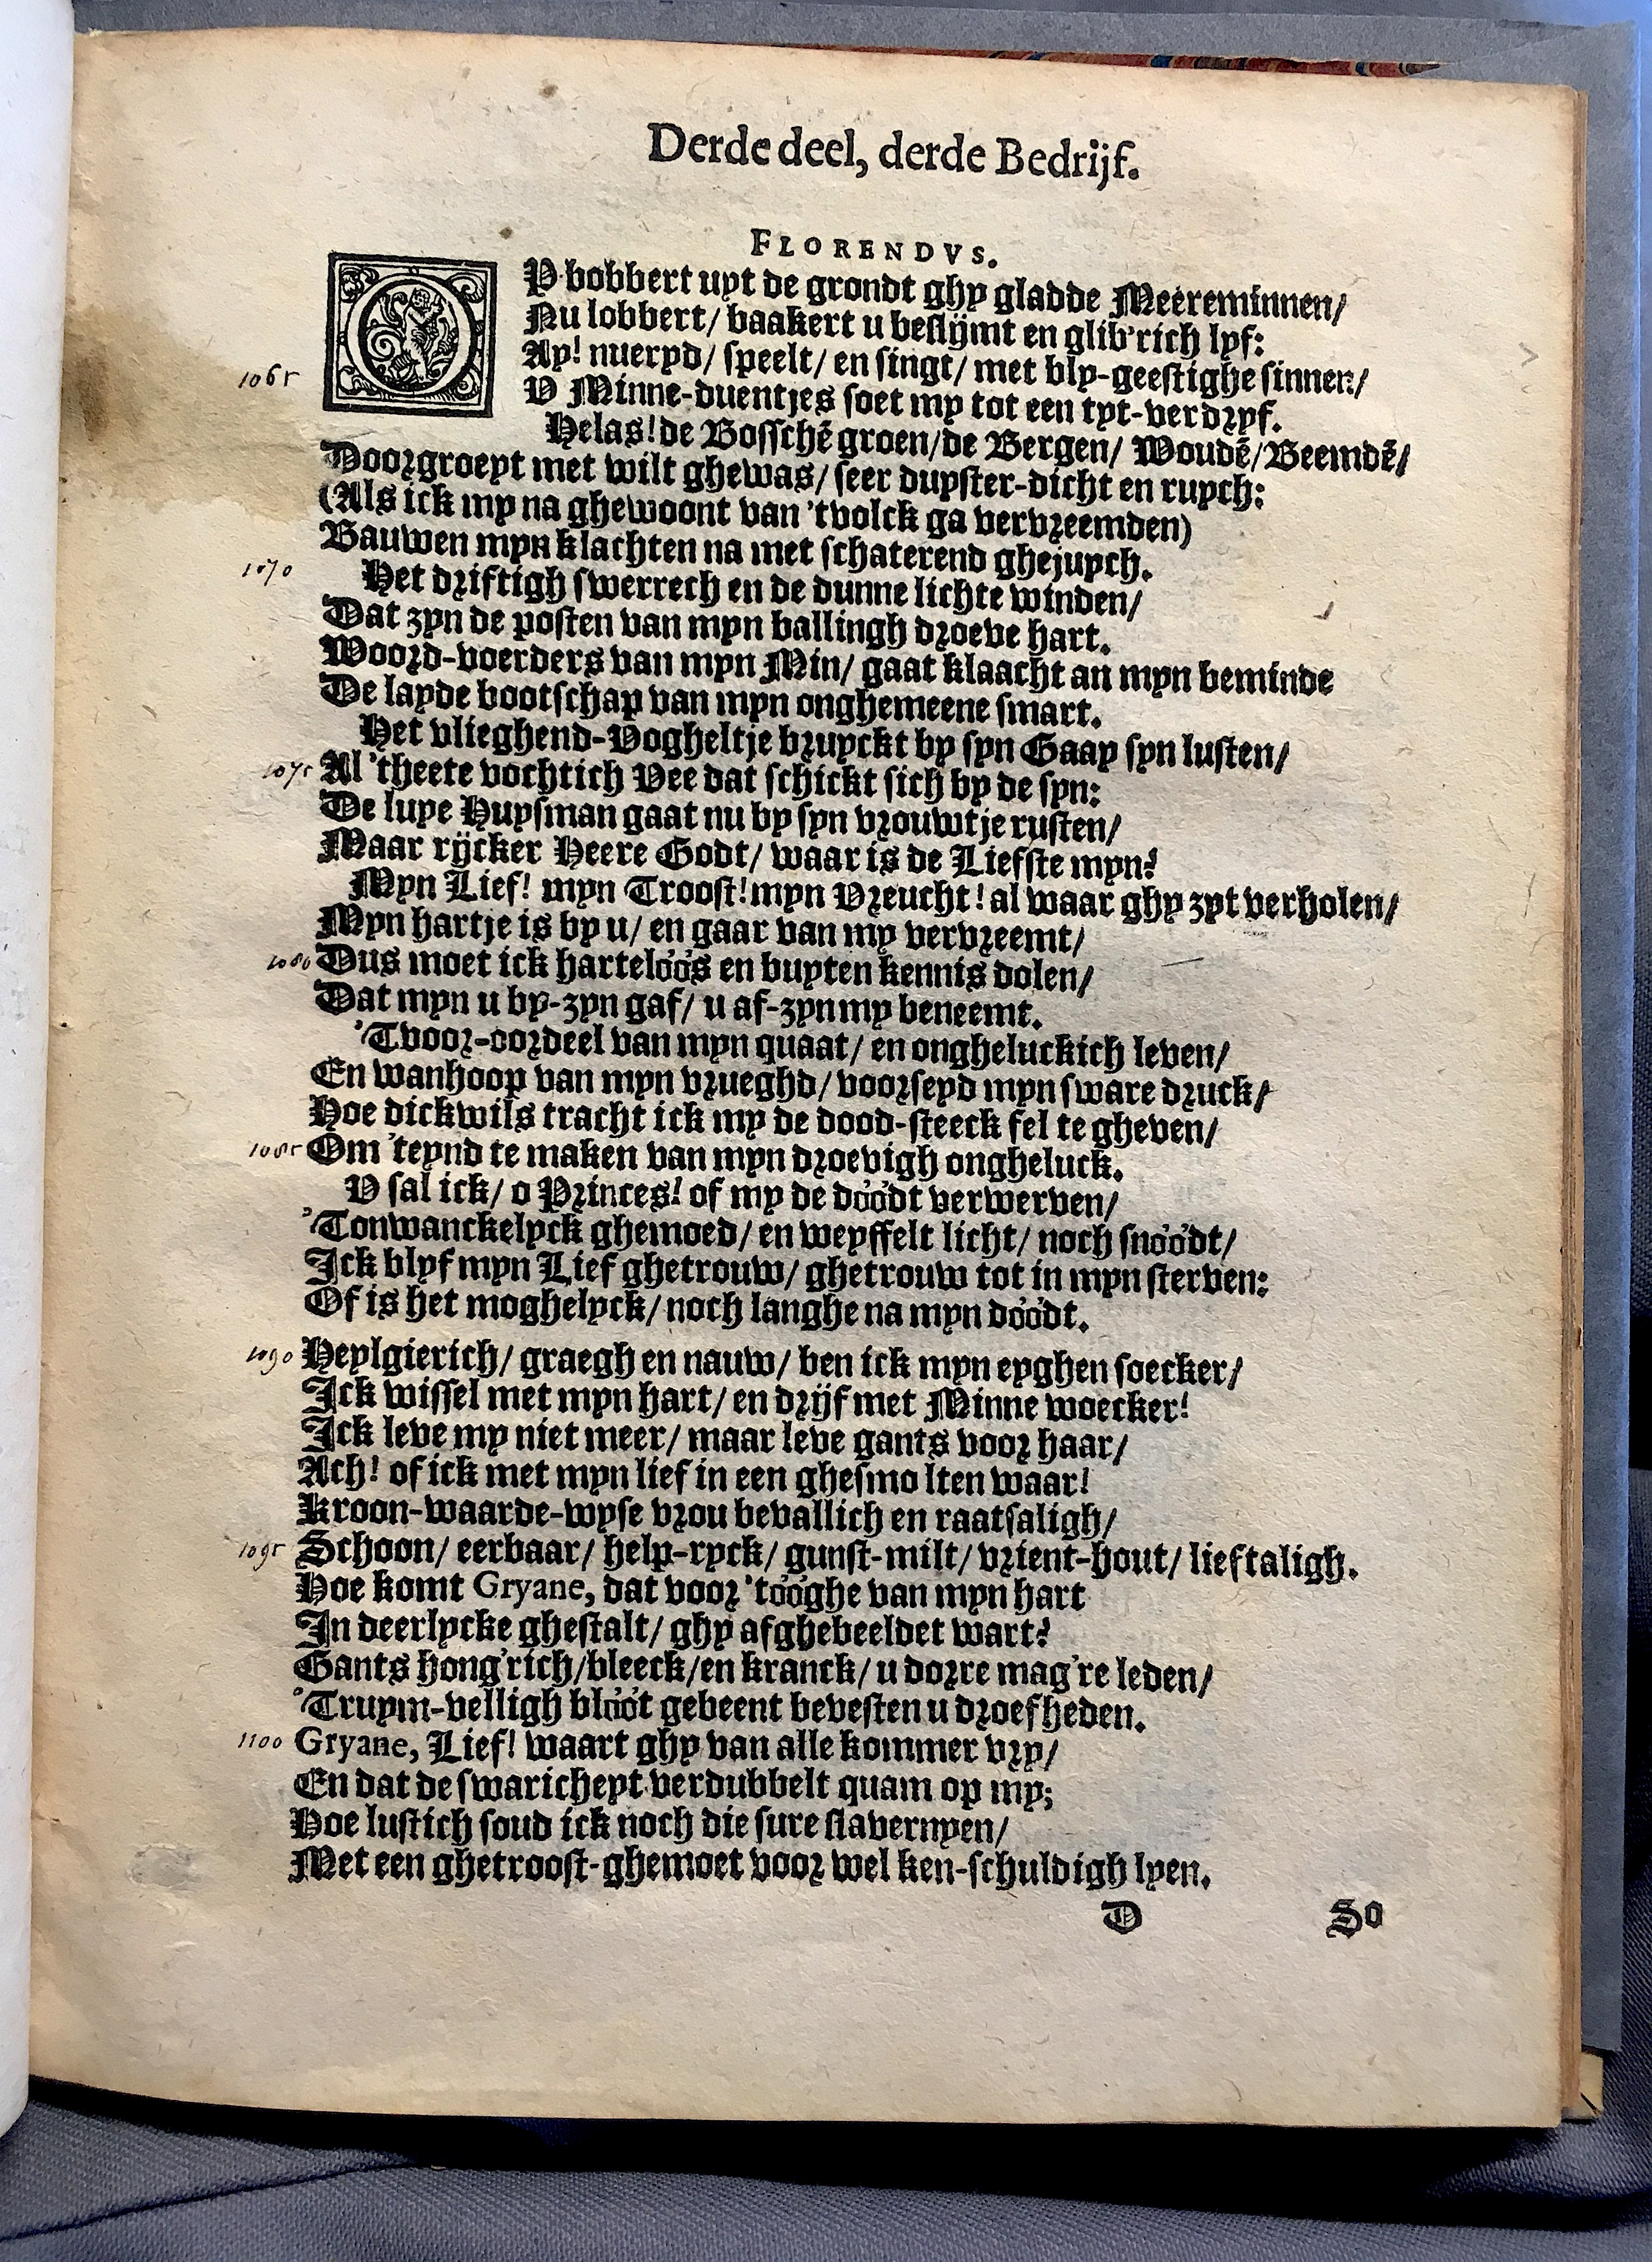 Derde deel, derde Bedrijf.
FLORENDVS.
OP bobbert uyt de grondt ghy gladde Meereminnen/
Nu lobbert/ baakert u beslijmt en glib'rich lyf:
Ay! nueryd/ speelt/ en singt/ met bly-geestighe sinnen/
1065 V Minne-duentjes soet my tot een tyt-verdryf.
Helas! de Bosschē groen/de Bergen/ Woudē/Beemdē/
Doorgroeyt met wilt ghewas/ seer duyster-dicht en ruych:
(Als ick my na ghewoont van 'tvolck ga vervreemden)
Bauwen myn klachten na met schaterend ghejuych.
1070 Het driftigh swerrech en de dunne lichte winden/
Dat zyn de posten van myn ballingh droeve hart.
Woord-voerders van myn Min/ gaat klaacht an myn beminde
De layde bootschap van myn onghemeene smart.
Het vlieghend-Vogheltje bruyckt by syn Gaay syn lusten/
1075 Al 'theete vochtich Vee dat schickt sich by de syn:
De luye Huysman gaat nu by syn vrouwtje rusten/
Maar rijcker Heere Godt/ waar is de Liefste myn?
Myn Lief! myn Troost! myn Vreucht! al waar ghy zyt verholen/
Myn hartje is by u/ en gaar van my vervreemt/
1080 Dus moet ick harteloos en buyten kennis dolen/
Dat myn u by-zyn gaf/ u af-zyn my beneemt.
'Tvoor-oordeel van myn quaat/ en ongheluckich leven/
En wanhoop van myn vrueghd/ voorseyd myn sware druck/
Hoe dickwils tracht ick my de dood-steeck fel te gheven/
1085 Om 'teynd te maken van myn droevigh ongheluck.
V sal ick/ o Princes! of my de doodt verwerven/
'Tonwanckelyck ghemoed/ en weyffelt licht/ noch snoodt/
Ick blyf myn Lief ghetrouw/ ghetrouw tot in myn sterven:
Of is het moghelyck/ noch langhe na myn doodt.
1090 Heylgierich/ graegh en nauw/ ben ick myn eyghen soecker/
Ick wissel met myn hart/ en drijf met Minne woecker!
Ick leve my niet meer/ maar leve gants voor haar/
Ach! of ick met myn lief in een ghesmo lten waar!
Kroon-waarde-wyse vrou bevallich en raatsaligh/
1095 Schoon/ eerbaar/ help-ryck/ gunst-milt/ vrient-hout/ lieftaligh.
Hoe komt Gryane, dat voor 'tooghe van myn hart
In deerlycke ghestalt/ ghy afghebeeldet wart?
Gants hong'rich/bleeck/en kranck/ u dorre mag're leden/
'Truym-velligh bloot gebeent bevesten u droefheden.
1100 Gryane, Lief! waart ghy van alle kommer vry/
En dat de swaricheyt verdubbelt quam op my;
Hoe lustich soud ick noch die sure slavernyen/
Met een ghetroost-ghemoet voor wel ken-schuldigh lyen.
D So